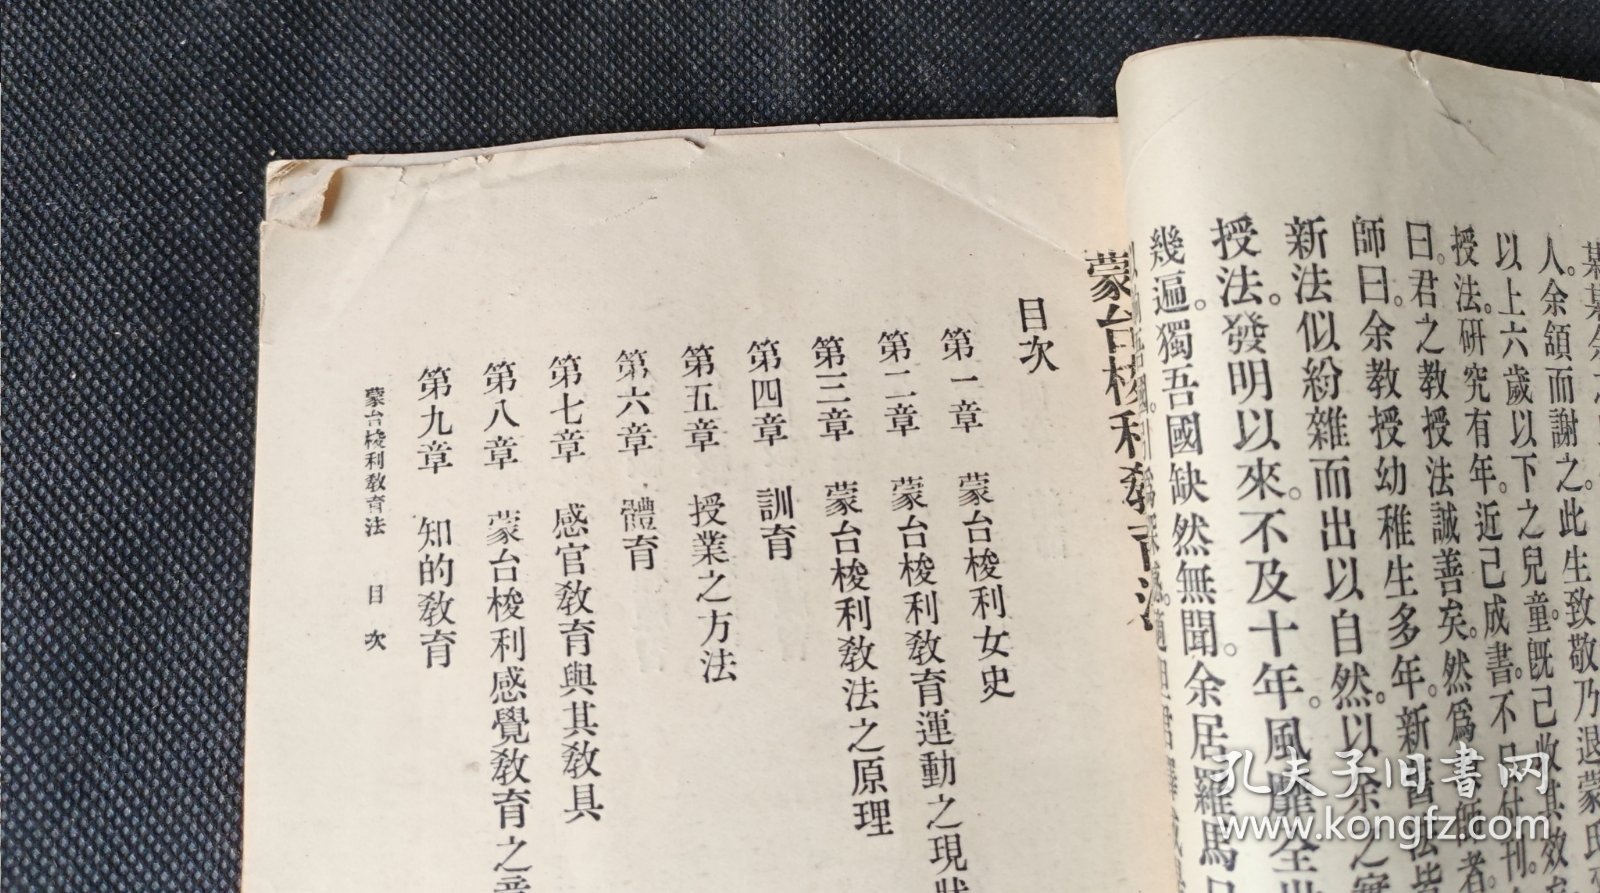 人。余頷而謝之。此生致敬乃退。蒙氏
以上六歲以下之兒童。既已收其效
授法。研究有年。近已成書。不日付刊。
曰。君之教授法誠善矣。然爲
師曰。余教授幼稚生多年。新舊法皆
新法似紛雜而出以自然。以余之實
授法。發明以來。不及十年。風靡全世
幾遍。獨吾國缺然無聞。余居羅馬
蒙台梭利教育法
目次
第一章 蒙台梭利女史
第二章 蒙台梭利教育運動之現狀
第三章 蒙台梭利教法之原理
第四章 訓育
第五章 授業之方法
第六章 體育
第七章 感官教育與其教具
第八章 蒙台梭利感覺教育之
第九章 知的教育
蒙台梭利教育法 目次
孔夫子旧書网
www.kongfz.com